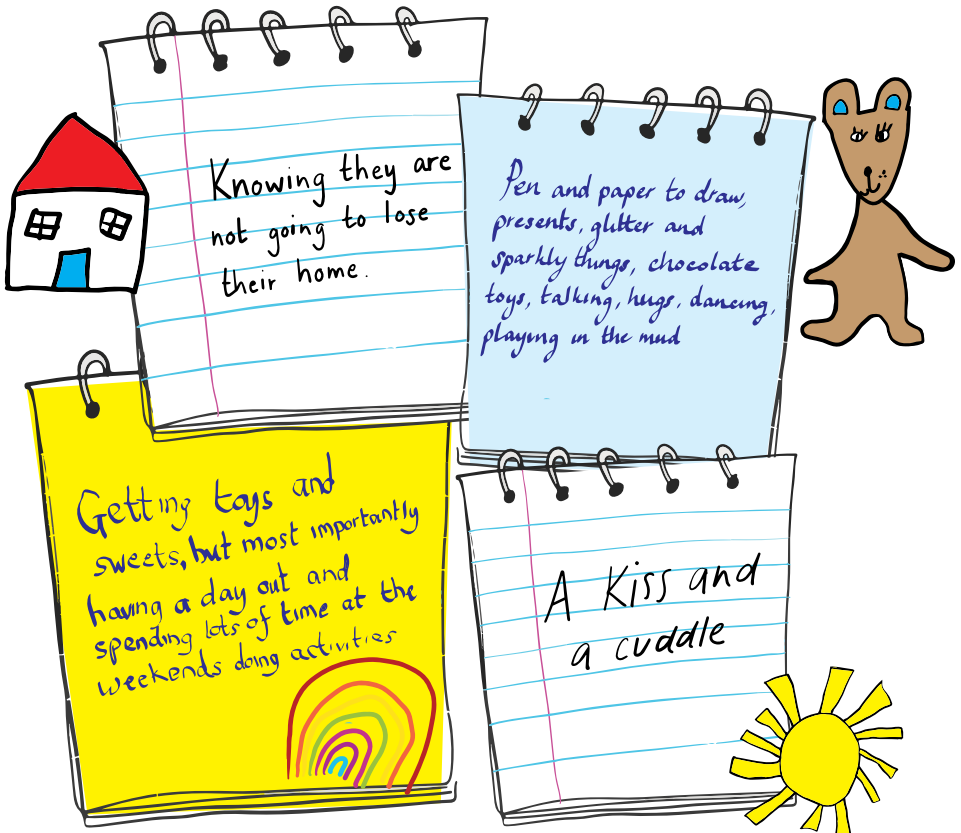 Knowing they are
not going to lose
their home.
Pen and paper to draw,
presents, glitter and
sparkly things, chocolate
toys, talking, hugs, dancing,
playing in the mud
Getting toys and
sweets, but most importantly
having a day out and
spending lots of time at the
weekends doing activities
A Kiss and
a cuddle